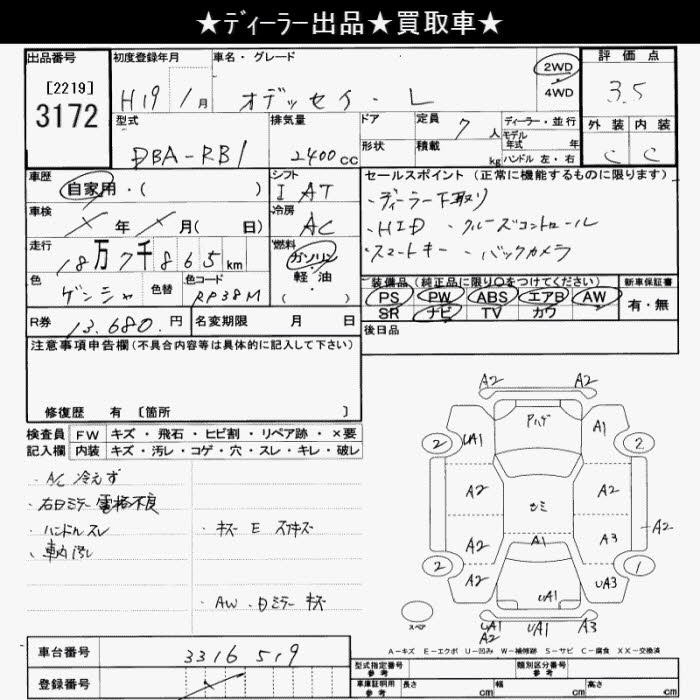 ★ディーラー出品★買取車★
出品番号
[2219]
3172
初度登録年月
H19 / 1月
車名・グレード
オデッセイ・L
2WD
4WD
評価点
3.5
外装 内装
C C
型式
DBA-RB1
排気量
2400cc
ドア
形状
定員 7 人
積載 kg
ディーラー・並行
モデル年式 年
ハンドル 左・右
車歴
自家用・( )
シフト
I AT
車検
× 年 × 月( 日)
冷房
AC
走行
18万7千865km
燃料
ガソリン
軽・油
( )
色
ゲンシャ
色替
色コード
RP38M
R券 13,680. 円
名変期限 月 日
セールスポイント (正常に機能するものに限ります)
・ディーラー下取り
・HID ・クルーズコントロール
・スマートキー ・バックカメラ
装備品 (純正品に限り○をつけてください)
PS PW ABS エアB AW
SR ナビ TV カワ
新車保証書
有・無
後日品
注意事項申告欄 (不具合内容等は具体的に記入して下さい)
修復歴 有 〔箇所 〕
検査員記入欄
FW キズ・飛石・ヒビ割・リペア跡・×要
内装 キズ・汚レ・コゲ・穴・スレ・キレ・破レ
・A/C 冷えず
・右ロミラー電格不良
・ハンドルスレ
・車内汚レ
・キズ E スリキズ
・AW、ロミラー キズ
A2 A2
Pハゲ
2 UA1 A1 2
A2 セミ A2
A2
A2 A1 A3
2 1
A2 UA1 UA3
スペア
UA1 UA1 A3
A2
A-キズ E-エクボ U-凹み W-補修跡 S-サビ C-腐食 XX-交換済
車台番号
3316519
登録番号
型式指定番号 参考
類別区分番号 参考
車庫証明用 参考
長さ cm
幅 cm
高さ cm